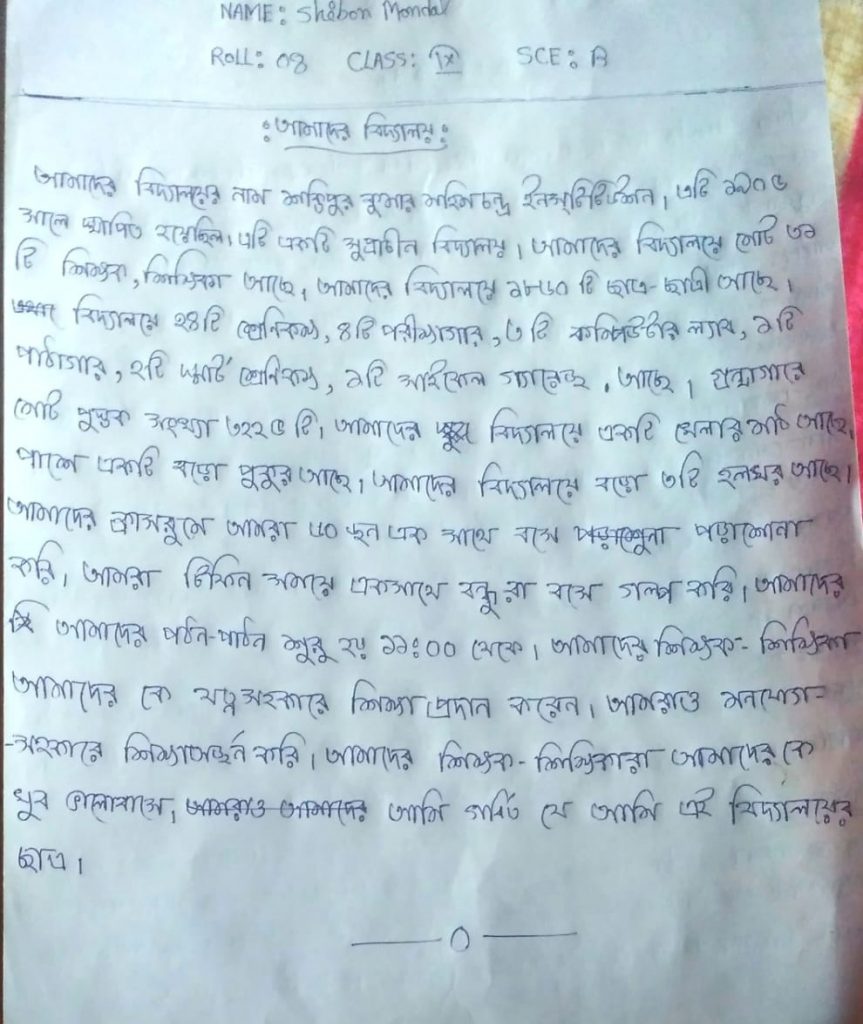 NAME: Shabon Mondal
ROLL: 08 CLASS: IX SCE: B
: আমাদের বিদ্যালয় :
আমাদের বিদ্যালয়ের নাম শক্তিপুর কুমার মহিমচন্দ্র ইনস্টিটিউশন। এটি ১৯০৫
সালে স্থাপিত হয়েছিল। এটি একটি সুপ্রাচীন বিদ্যালয়। আমাদের বিদ্যালয়ে মোট ৩১
টি শিক্ষক, শিক্ষিকা আছে। আমাদের বিদ্যালয়ে ১৮৬০ টি ছাত্র-ছাত্রী আছে।
বিদ্যালয়ে ২৪টি শ্রেনিকক্ষ, ৪টি পরীক্ষাগার, ৩ টি কম্পিউটার ল্যাব, ১টি
পাঠাগার, ২টি স্মার্ট শ্রেনিকক্ষ, ১টি সাইকেল গ্যারেজ . আছে। গ্রন্থাগারে
মোট পুস্তক সংখ্যা ৩২২৫ টি। আমাদের বিদ্যালয়ে একটি খেলার মাঠ আছে,
পাশে একটি বড়ো পুকুর আছে। আমাদের বিদ্যালয়ে বড়ো ৩টি হলঘর আছে।
আমাদের ক্লাসরুমে আমরা ৬০ জন এক সাথে বসে পড়াশোনা
করি। আমরা টিফিন সময়ে একসাথে বন্ধুরা বসে গল্প করি। আমাদের
আমাদের পঠন-পাঠন শুরু হয় ১১:০০ থেকে। আমাদের শিক্ষক-শিক্ষিকা
আমাদের কে যত্নসহকারে শিক্ষা প্রদান করেন। আমরাও মনযোগ-
-সহকারে শিক্ষাঅর্জন করি। আমাদের শিক্ষক-শিক্ষিকারা আমাদের কে
খুব ভালোবাসে, আমরাও আমাদের আমি গর্বিত যে আমি এই বিদ্যালয়ের
ছাত্র।